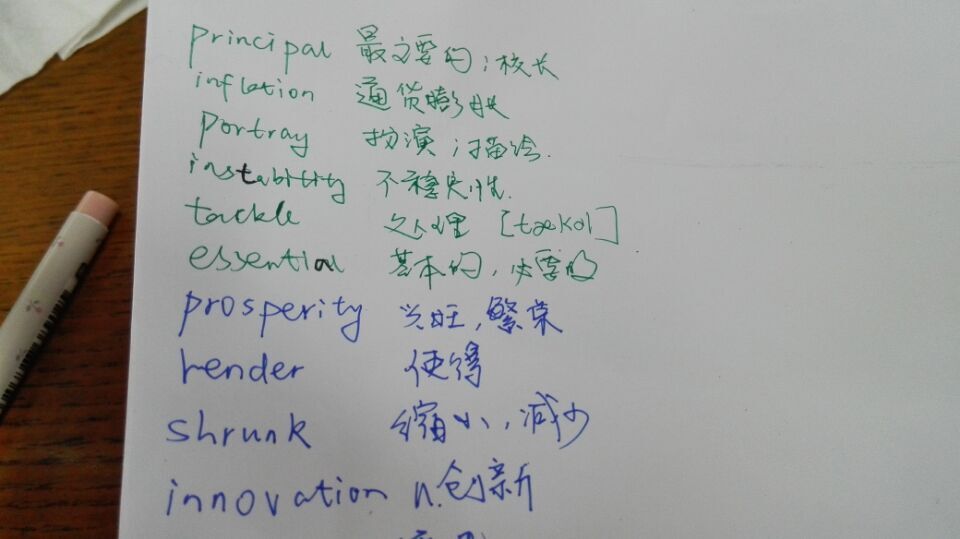 principal 最主要的；校长
inflation 通货膨胀
portray 扮演；描绘.
instability 不稳定性.
tackle 处理 [tækəl]
essential 基本的，必要的
prosperity 兴旺，繁荣
render 使得
shrunk 缩小，减少
innovation n.创新